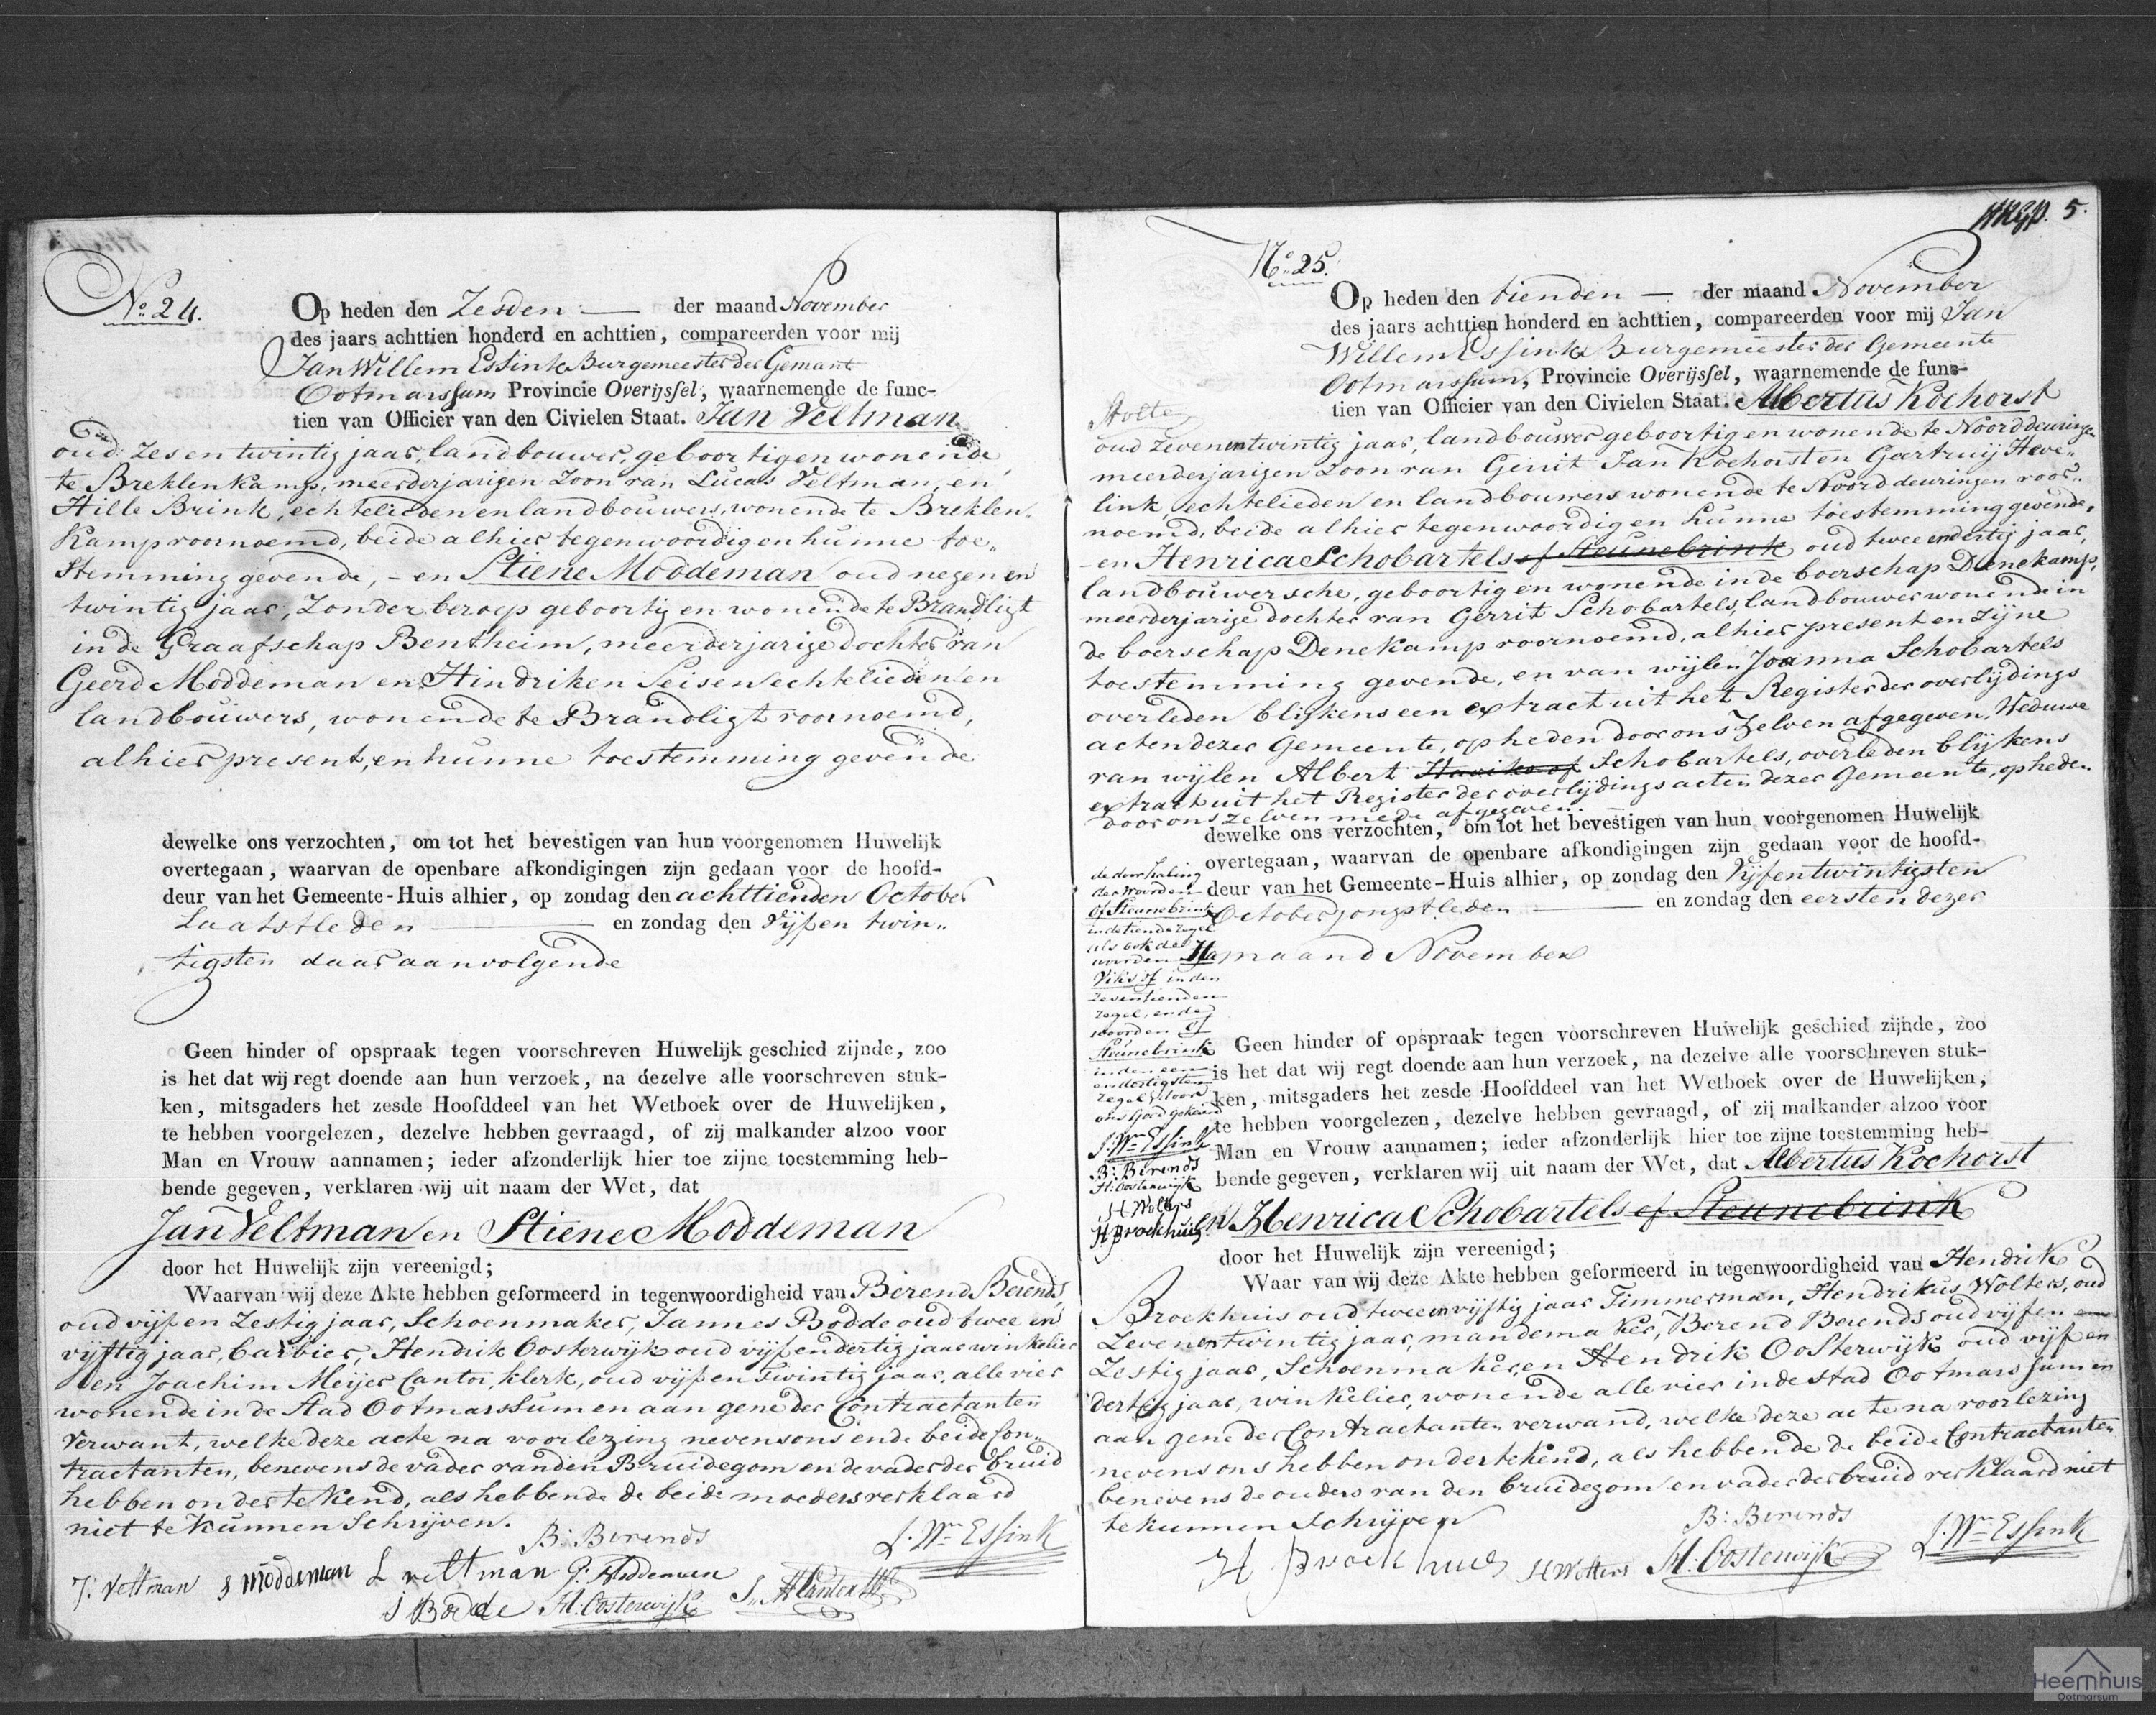 No. 24.
Op heden den Zesden — der maand November
des jaars achttien honderd en achttien, compareerden voor mij
Jan Willem Essink Burgemeester der Gemeente
Ootmarssum Provincie Overijssel, waarnemende de func-
tien van Officier van den Civielen Staat. Jan Veltman
oud Zes en twintig jaar, landbouwer, geboortig en wonende
te Breklenkamp, meerderjarigen Zoon van Lucas Veltman, en
Hille Brink, echtelieden en landbouwers, wonende te Breklen-
Kamp voornoemd, beide alhier tegenwoordig en hunne toe-
stemming gevende, - en Stiene Moddeman oud negen en
twintig jaar, Zonder beroep geboortig en wonende te Brandligt
in de Graafschap Bentheim, meerderjarige dochter van
Geerd Moddeman en Hindriken Seisen echtelieden en
landbouwers, wonende te Brandligt voornoemd,
alhier present, en hunne toestemming gevende
dewelke ons verzochten, om tot het bevestigen van hun voorgenomen Huwelijk
overtegaan, waarvan de openbare afkondigingen zijn gedaan voor de hoofd-
deur van het Gemeente-Huis alhier, op zondag den achttienden October
Laatstleden — en zondag den Vijf en twin-
tigsten daar aanvolgende
Geen hinder of opspraak tegen voorschreven Huwelijk geschied zijnde, zoo
is het dat wij regt doende aan hun verzoek, na dezelve alle voorschreven stuk-
ken, mitsgaders het zesde Hoofddeel van het Wetboek over de Huwelijken,
te hebben voorgelezen, dezelve hebben gevraagd, of zij malkander alzoo voor
Man en Vrouw aannamen; ieder afzonderlijk hier toe zijne toestemming heb-
bende gegeven, verklaren wij uit naam der Wet, dat
Jan Veltman en Stiene Moddeman
door het Huwelijk zijn vereenigd;
Waarvan wij deze Akte hebben geformeerd in tegenwoordigheid van Berend Berends,
oud vijf en Zestig jaar, Schoenmaker, Jannes Bodde oud twee en
vijftig jaar, barbier, Hendrik Oosterwijk oud vijf en dertig jaar winkelier
en Joachim Meijer Cantor, klerk, oud vijf en twintig jaar, alle vier
wonende in de Stad Ootmarssum en aan gene der Contractanten
verwant, welke deze acte na voorlezing nevens ons ende beide Con-
tractanten, benevens de vader van den Bruidegom en de vader der bruid
hebben onderteKend, als hebbende de beide moeders verklaard
niet te Kunnen Schrijven.
B: Berends
J. Wm Essink
J: Veltman S moddeman L veltman G: Moddeman
J Bodde H. Oosterwijk
No. 25.
5.
Op heden den tienden — der maand November
des jaars achttien honderd en achttien, compareerden voor mij Jan
Willem Essink Burgemeester der Gemeente
Ootmarssum, Provincie Overijssel, waarnemende de func-
tien van Officier van den Civielen Staat. Albertus Kochorst
oud Zeven en twintig jaar, landbouwer geboortig en wonende te Noorddeuringen
meerderjarigen Zoon van Gerrit Jan Kochorst en Geertruij Heve-
link echtelieden en landbouwers wonende te Noorddeuringen voor-
noemd, beide alhier tegenwoordig en hunne toestemming gevende,
- en Henrica Schobartels of Steunebrink oud twee en dertig jaar,
landbouwersche, geboortig en wonende in de boerschap Denekamp,
meerderjarige dochter van Gerrit Schobartels, landbouwer wonende in
de boerschap Denekamp voornoemd, alhier present en zijne
toestemming gevende, en van wijlen Joanna Schobartels
overleden blijkens een extract uit het Register der overlijdings
acten dezer Gemeente, op heden door ons Zelven afgegeven, Weduwe
van wijlen Albert Haviks of Schobartels, overleden blijkens
extract uit het Register der overlijdings acten dezer Gemeente, op heden
door ons zelven mede afgegeven.
dewelke ons verzochten, om tot het bevestigen van hun voorgenomen Huwelijk
overtegaan, waarvan de openbare afkondigingen zijn gedaan voor de hoofd-
deur van het Gemeente-Huis alhier, op zondag den Vijf en twintigsten
October jongstleden — en zondag den eersten dezer
maand November
de doorhaling
der Woorden
of Steunebrink
in de tiende regel
als ook der
woorden Ha
viks of in den
zeventienden
regel, en der
woorden of
Steunebrink
in den een
en dertigsten
regel, door
ons goed gekeurd
J. Wm Essink
B: Berends
H. Oosterwijk
H Wolters
H Brockhuis
Geen hinder of opspraak tegen voorschreven Huwelijk geschied zijnde, zoo
is het dat wij regt doende aan hun verzoek, na dezelve alle voorschreven stuk-
ken, mitsgaders het zesde Hoofddeel van het Wetboek over de Huwelijken,
te hebben voorgelezen, dezelve hebben gevraagd, of zij malkander alzoo voor
Man en Vrouw aannamen; ieder afzonderlijk hier toe zijne toestemming heb-
bende gegeven, verklaren wij uit naam der Wet, dat Albertus Kochorst
en Henrica Schobartels of Steunebrink
door het Huwelijk zijn vereenigd;
Waar van wij deze Akte hebben geformeerd in tegenwoordigheid van Hendrik
Brockhuis oud twee en vijftig jaar Timmerman, Hendrikus Wolters, oud
Zeven en twintig jaar, mandemaker, Berend Berends oud vijf en
Zestig jaar, Schoenmaker, en Hendrik Oosterwijk oud vijf en
dertig jaar, winkelier, wonende alle vier in de stad Ootmarssum en
aan gene der Contractanten verwand, welke deze acte na voorlezing
nevens ons hebben ondertekend, als hebbende de beide Contractanten
benevens de ouders van den bruidegom en vader der bruid verklaard niet
te kunnen Schrijven
B: Berends
J. Wm Essink
H Brockhuis H Wolters H. Oosterwijk
Heemhuis
Ootmarsum